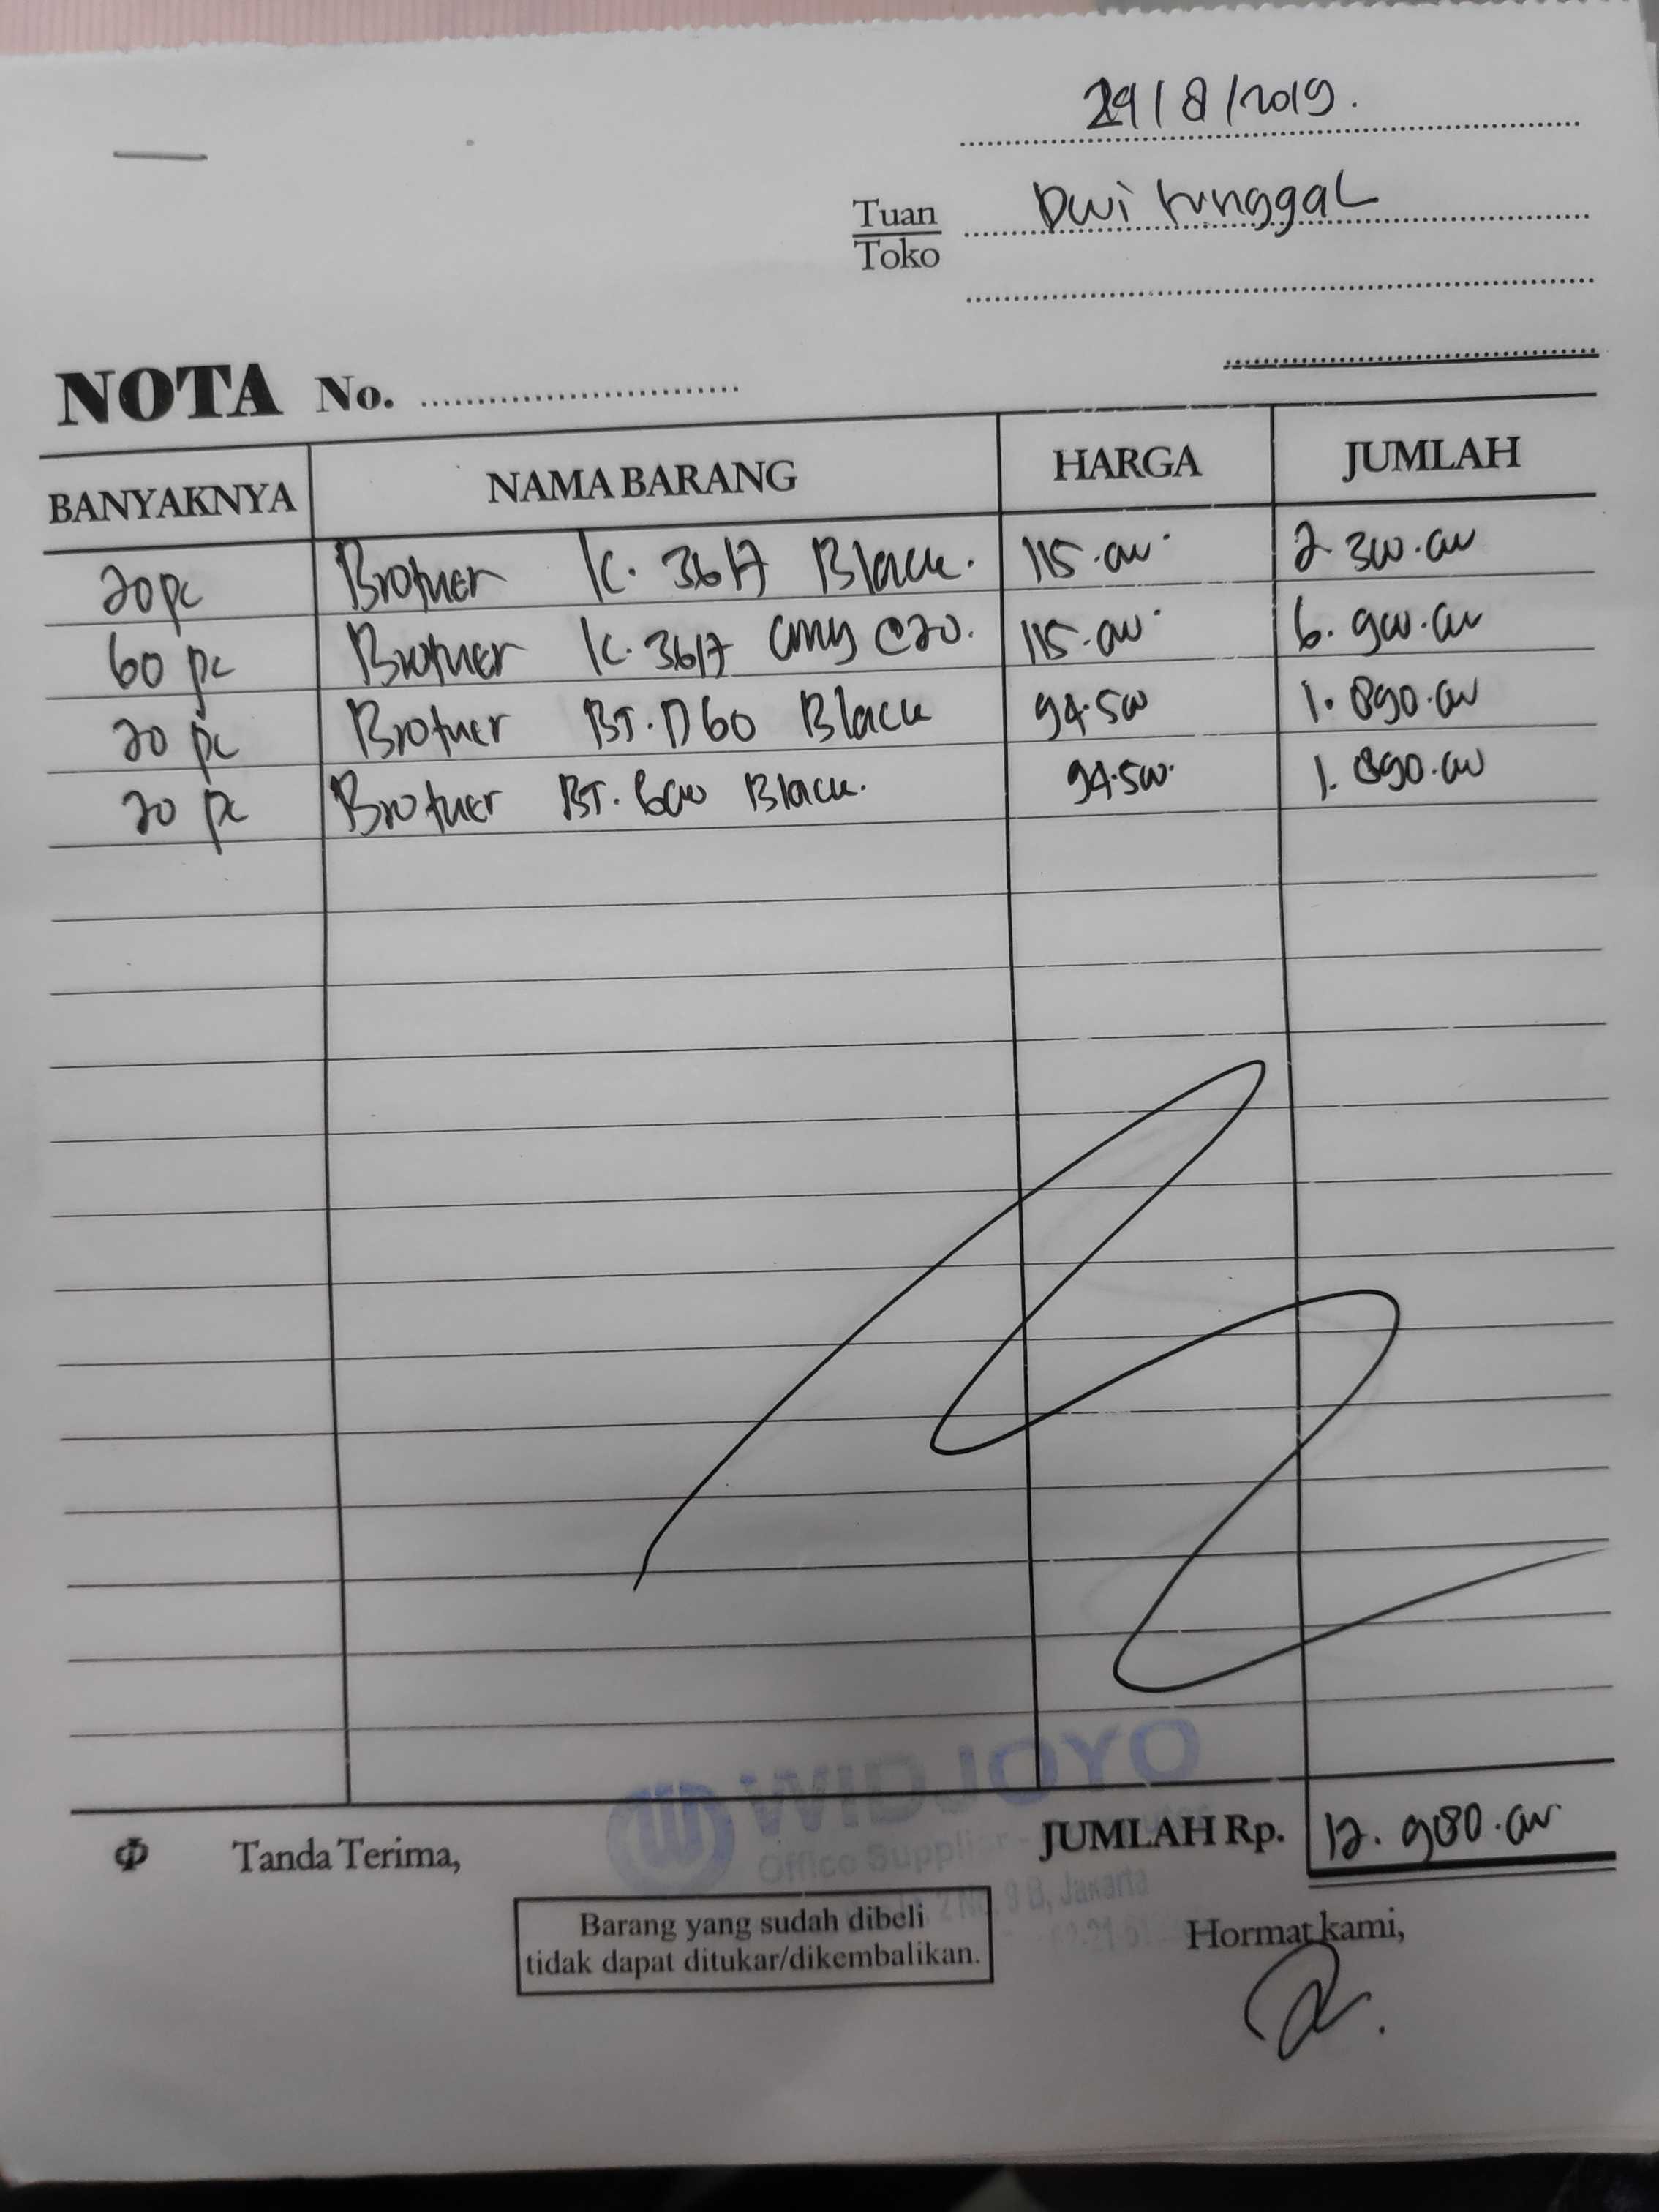 29/8/2019.
Tuan Dwi tunggal
Toko
NOTA No.
BANYAKNYA NAMA BARANG HARGA JUMLAH
20 pc Brother IC. 3617 Black. 115.00 2.300.00
60 pc Brother IC. 3617 Cmy @20. 115.00 6.900.00
20 pc Brother BT.D60 Black 94.500 1.890.00
20 pc Brother BT.6000 Black. 94.500 1.890.00
WIDJOYO
Office
Jakarta
Φ Tanda Terima, JUMLAH Rp. 12.980.00
Barang yang sudah dibeli
tidak dapat ditukar/dikembalikan.
Hormat kami,